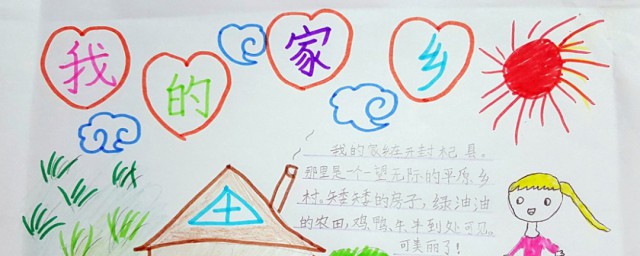 我的家乡
我的家乡在开封杞县。
那里是一个一望无际的平原。乡
村、矮矮的房子，绿油油
的农田，鸡、鸭、牛、羊到处可见。
可美丽了！